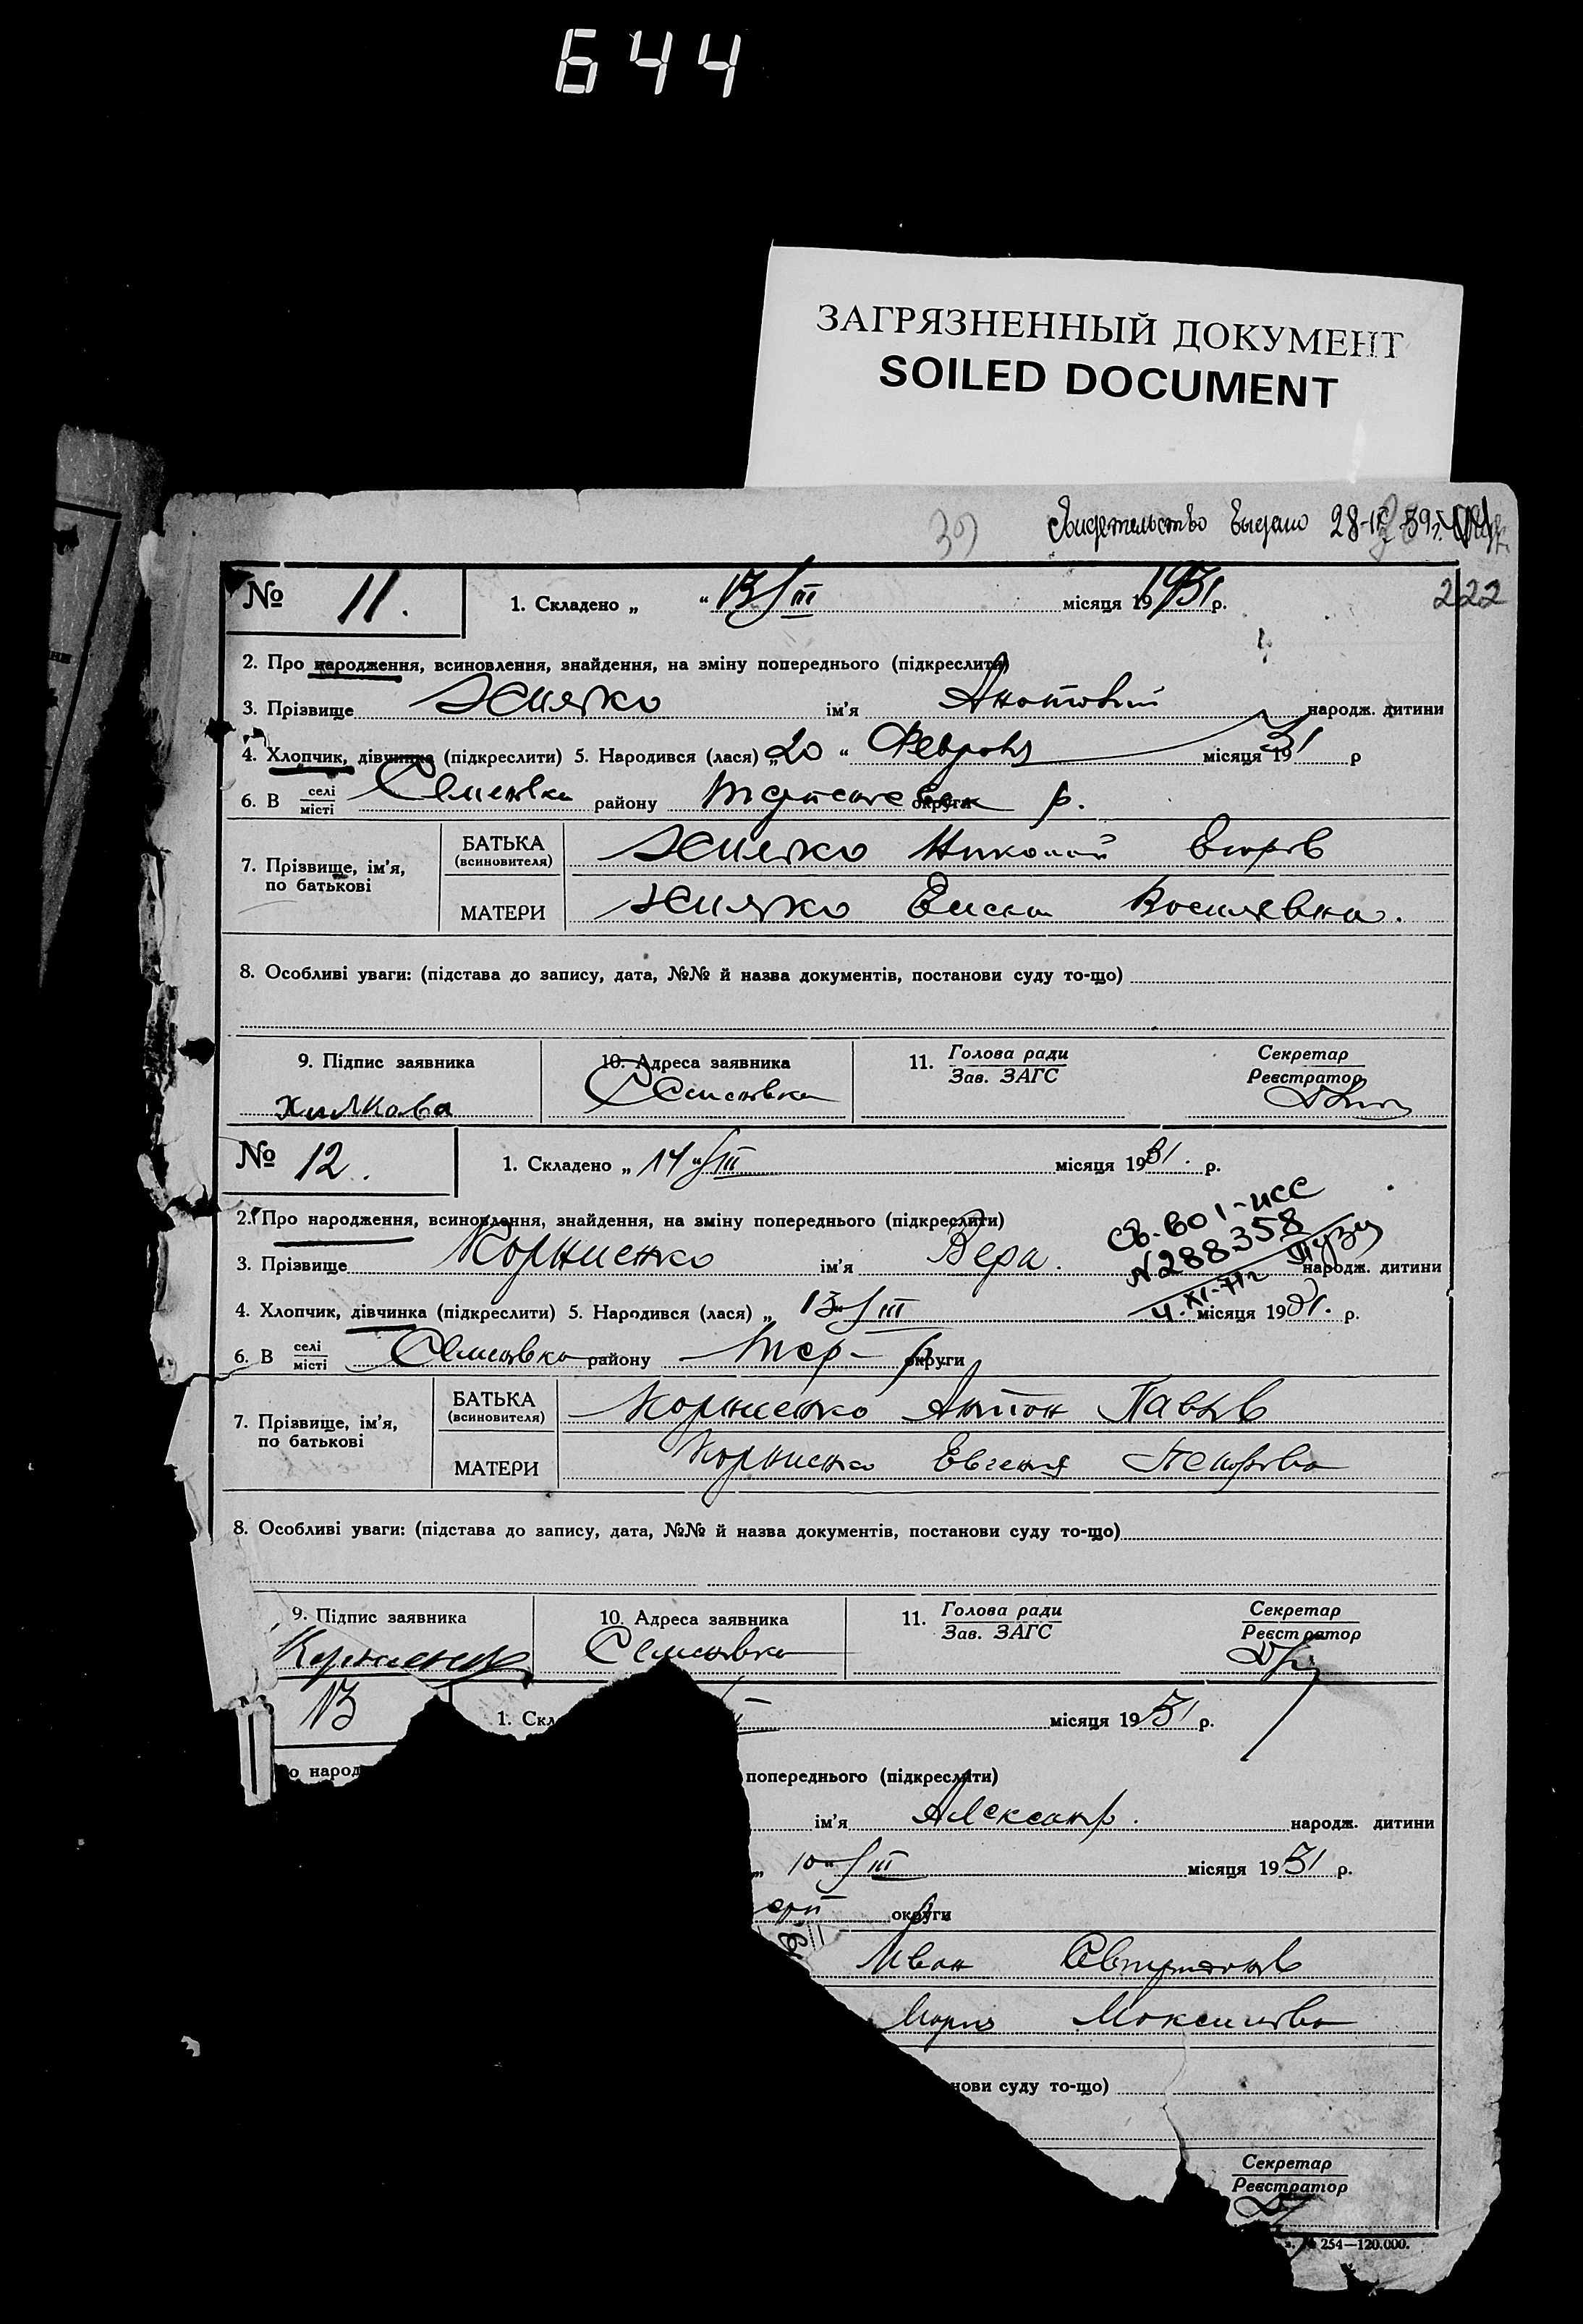 644
ЗАГРЯЗНЕННЫЙ ДОКУМЕНТ
SOILED DOCUMENT
39
Свидетельство выдано 28-IX 59г.
222
№ 11. 1. Складено „ “ 13/III місяця 1931 р.
2. Про народження, всиновлення, знайдення, на зміну попереднього (підкреслити)
3. Прізвище ім'я Анатолий народж. дитини
4. Хлопчик, дівчинка (підкреслити) 5. Народився (лася) „20 “ Февраля місяця 1931 р
6. В селі/місті Семеновка району округи р.
7. Прізвище, ім'я, по батькові
БАТЬКА (всиновителя) Николай Егоров
МАТЕРИ Василевна.
8. Особливі уваги: (підстава до запису, дата, №№ й назва документів, постанови суду то-що)
9. Підпис заявника 10. Адреса заявника 11. Голова ради/Зав. ЗАГС Секретар/Реєстратор
Семеновка
№ 12. 1. Складено „ 14 “/III місяця 1931. р.
2. Про народження, всиновлення, знайдення, на зміну попереднього (підкреслити)
Св. во I-ИСС
N 288358
4.XI-71г
3. Прізвище Корниенко ім'я Вера. народж. дитини
4. Хлопчик, дівчинка (підкреслити) 5. Народився (лася) „ 13 “/III місяця 1931. р.
6. В селі/місті Семеновка району Тер- округи р.
7. Прізвище, ім'я, по батькові
БАТЬКА (всиновителя) Корниенко Антон Павлов
МАТЕРИ Корниенко Евгения
8. Особливі уваги: (підстава до запису, дата, №№ й назва документів, постанови суду то-що)
9. Підпис заявника 10. Адреса заявника 11. Голова ради/Зав. ЗАГС Секретар/Реєстратор
Корниенко Семеновка
13 1. Скл місяця 1931 р.
о народ попереднього (підкреслити)
ім'я Александр. народж. дитини
„ 10 “/III місяця 1931 р.
ерп округи
Иван
Мария Максимовна
нови суду то-що)
Секретар/Реєстратор
№ 254—120.000.